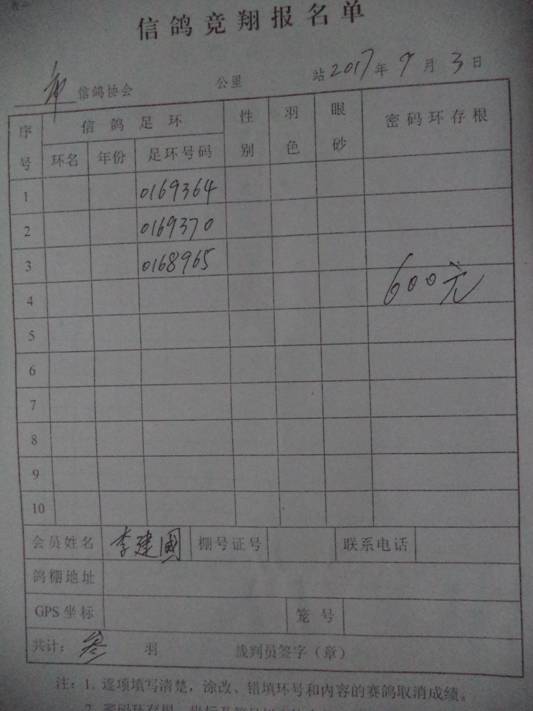 信鸽竞翔报名单
市 信鸽协会 公里 站 2017 年 9 月 3 日
序号 信鸽足环 性别 羽色 眼砂 密码环存根
环名 年份 足环号码
1 0169364
2 0169370
3 0168965
4 600元
5
6
7
8
9
10
会员姓名 李建国 棚号证号 联系电话
鸽棚地址
GPS坐标 笼号
共计: 叁 羽 裁判员签字（章）
注: 1. 逐项填写清楚，涂改、错填环号和内容的赛鸽取消成绩。